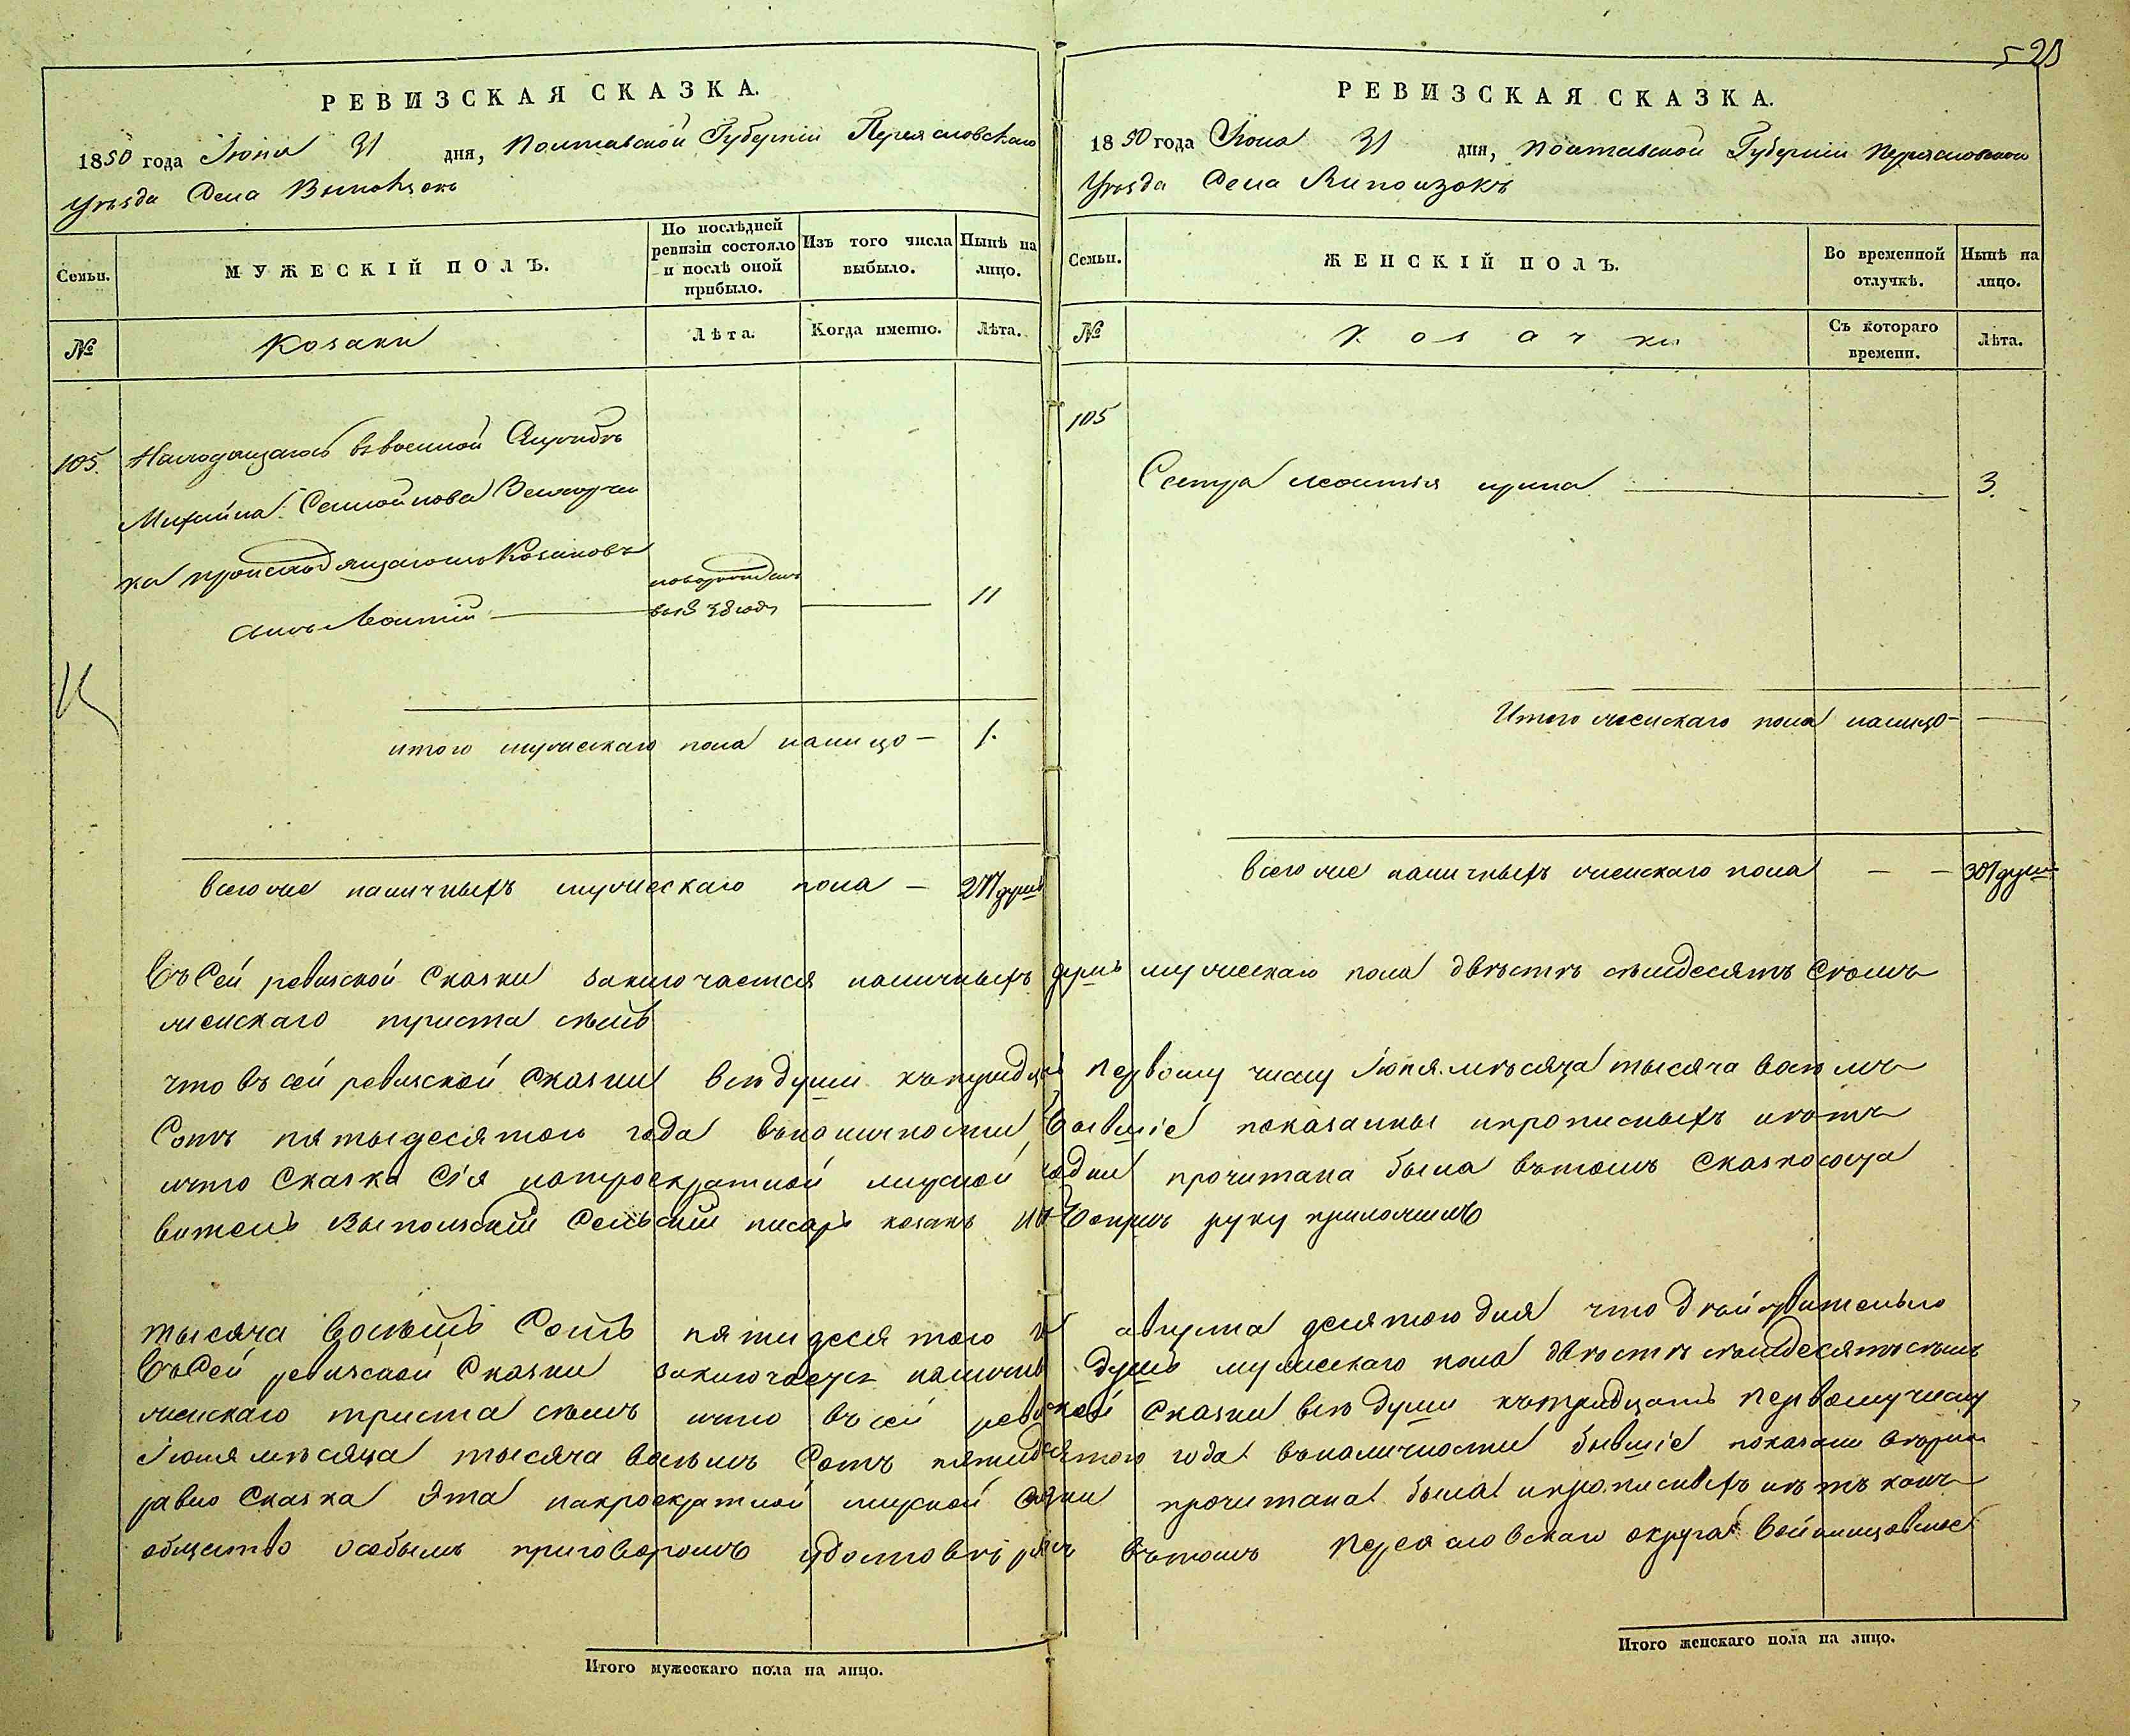 520
РЕВИЗСКАЯ СКАЗКА.
1850 года Июня 31 дня, Полтавской Губернии Переясловскаго
Уѣзда Села
Семьи.
МУЖЕСКІЙ ПОЛЪ.
По послѣдней ревизіи состояло и послѣ оной прибыло.
Изъ того числа выбыло.
Нынѣ на лицо.
№
Козаки
Лѣта.
Когда именно.
Лѣта.
105. Находящагося въ военной Службѣ
Михайла Самойлова
ка Козаковъ
сынъ Леонтій
11
итого мужескаго пола налицо — 1.
Всего же наличныхъ мужескаго пола — 277 душъ
РЕВИЗСКАЯ СКАЗКА.
1850 года Июня 31 дня, Полтавской Губернии Переясловскаго
Уѣзда Села
Семьи.
ЖЕНСКІЙ ПОЛЪ.
Во временной отлучкѣ.
Нынѣ на лицо.
№
Козачки
Съ котораго времени.
Лѣта.
105
Сестра Леонтія 3.
Итого женскаго пола налицо —
Всего же наличныхъ женскаго пола — — 307 душъ
Въ сей ревизской Сказки заключается наличныхъ душъ мужескаго пола двѣстѣ семдесятъ Семъ
женскаго триста семь
что въ сей ревизской Сказки всѣ души къ тридцать первому числу Июня мѣсяца тысяча восемъ
Сотъ пятьидесятого года въ наличности бывшіе показанны и прописныхъ нѣтъ
и что Сказка Сія на троекратной мирской сходки прочитана была въ томъ Сказкососта
витель Сельскій писарь козакъ руку приложилъ
тысяча Восемь Сотъ пятидесятого августа десятого дня что дѣйствительно
Въ Сей ревизской Сказки заключается душъ мужескаго пола двѣстѣ семдесятъ семъ
женскаго триста семь и что въ сей ревизской Сказки всѣ души къ тридцать первому числу
Июня мѣсяца тысяча восемъ Сотъ пятидесятого года въ наличности бывшіе показаны
равно Сказка Эта на троекратной мирской сходки прочитана была и прописныхъ нѣтъ
общество особымъ приговоромъ въ томъ Переясловскаго округа
Итого мужескаго пола на лицо.
Итого женскаго пола на лицо.